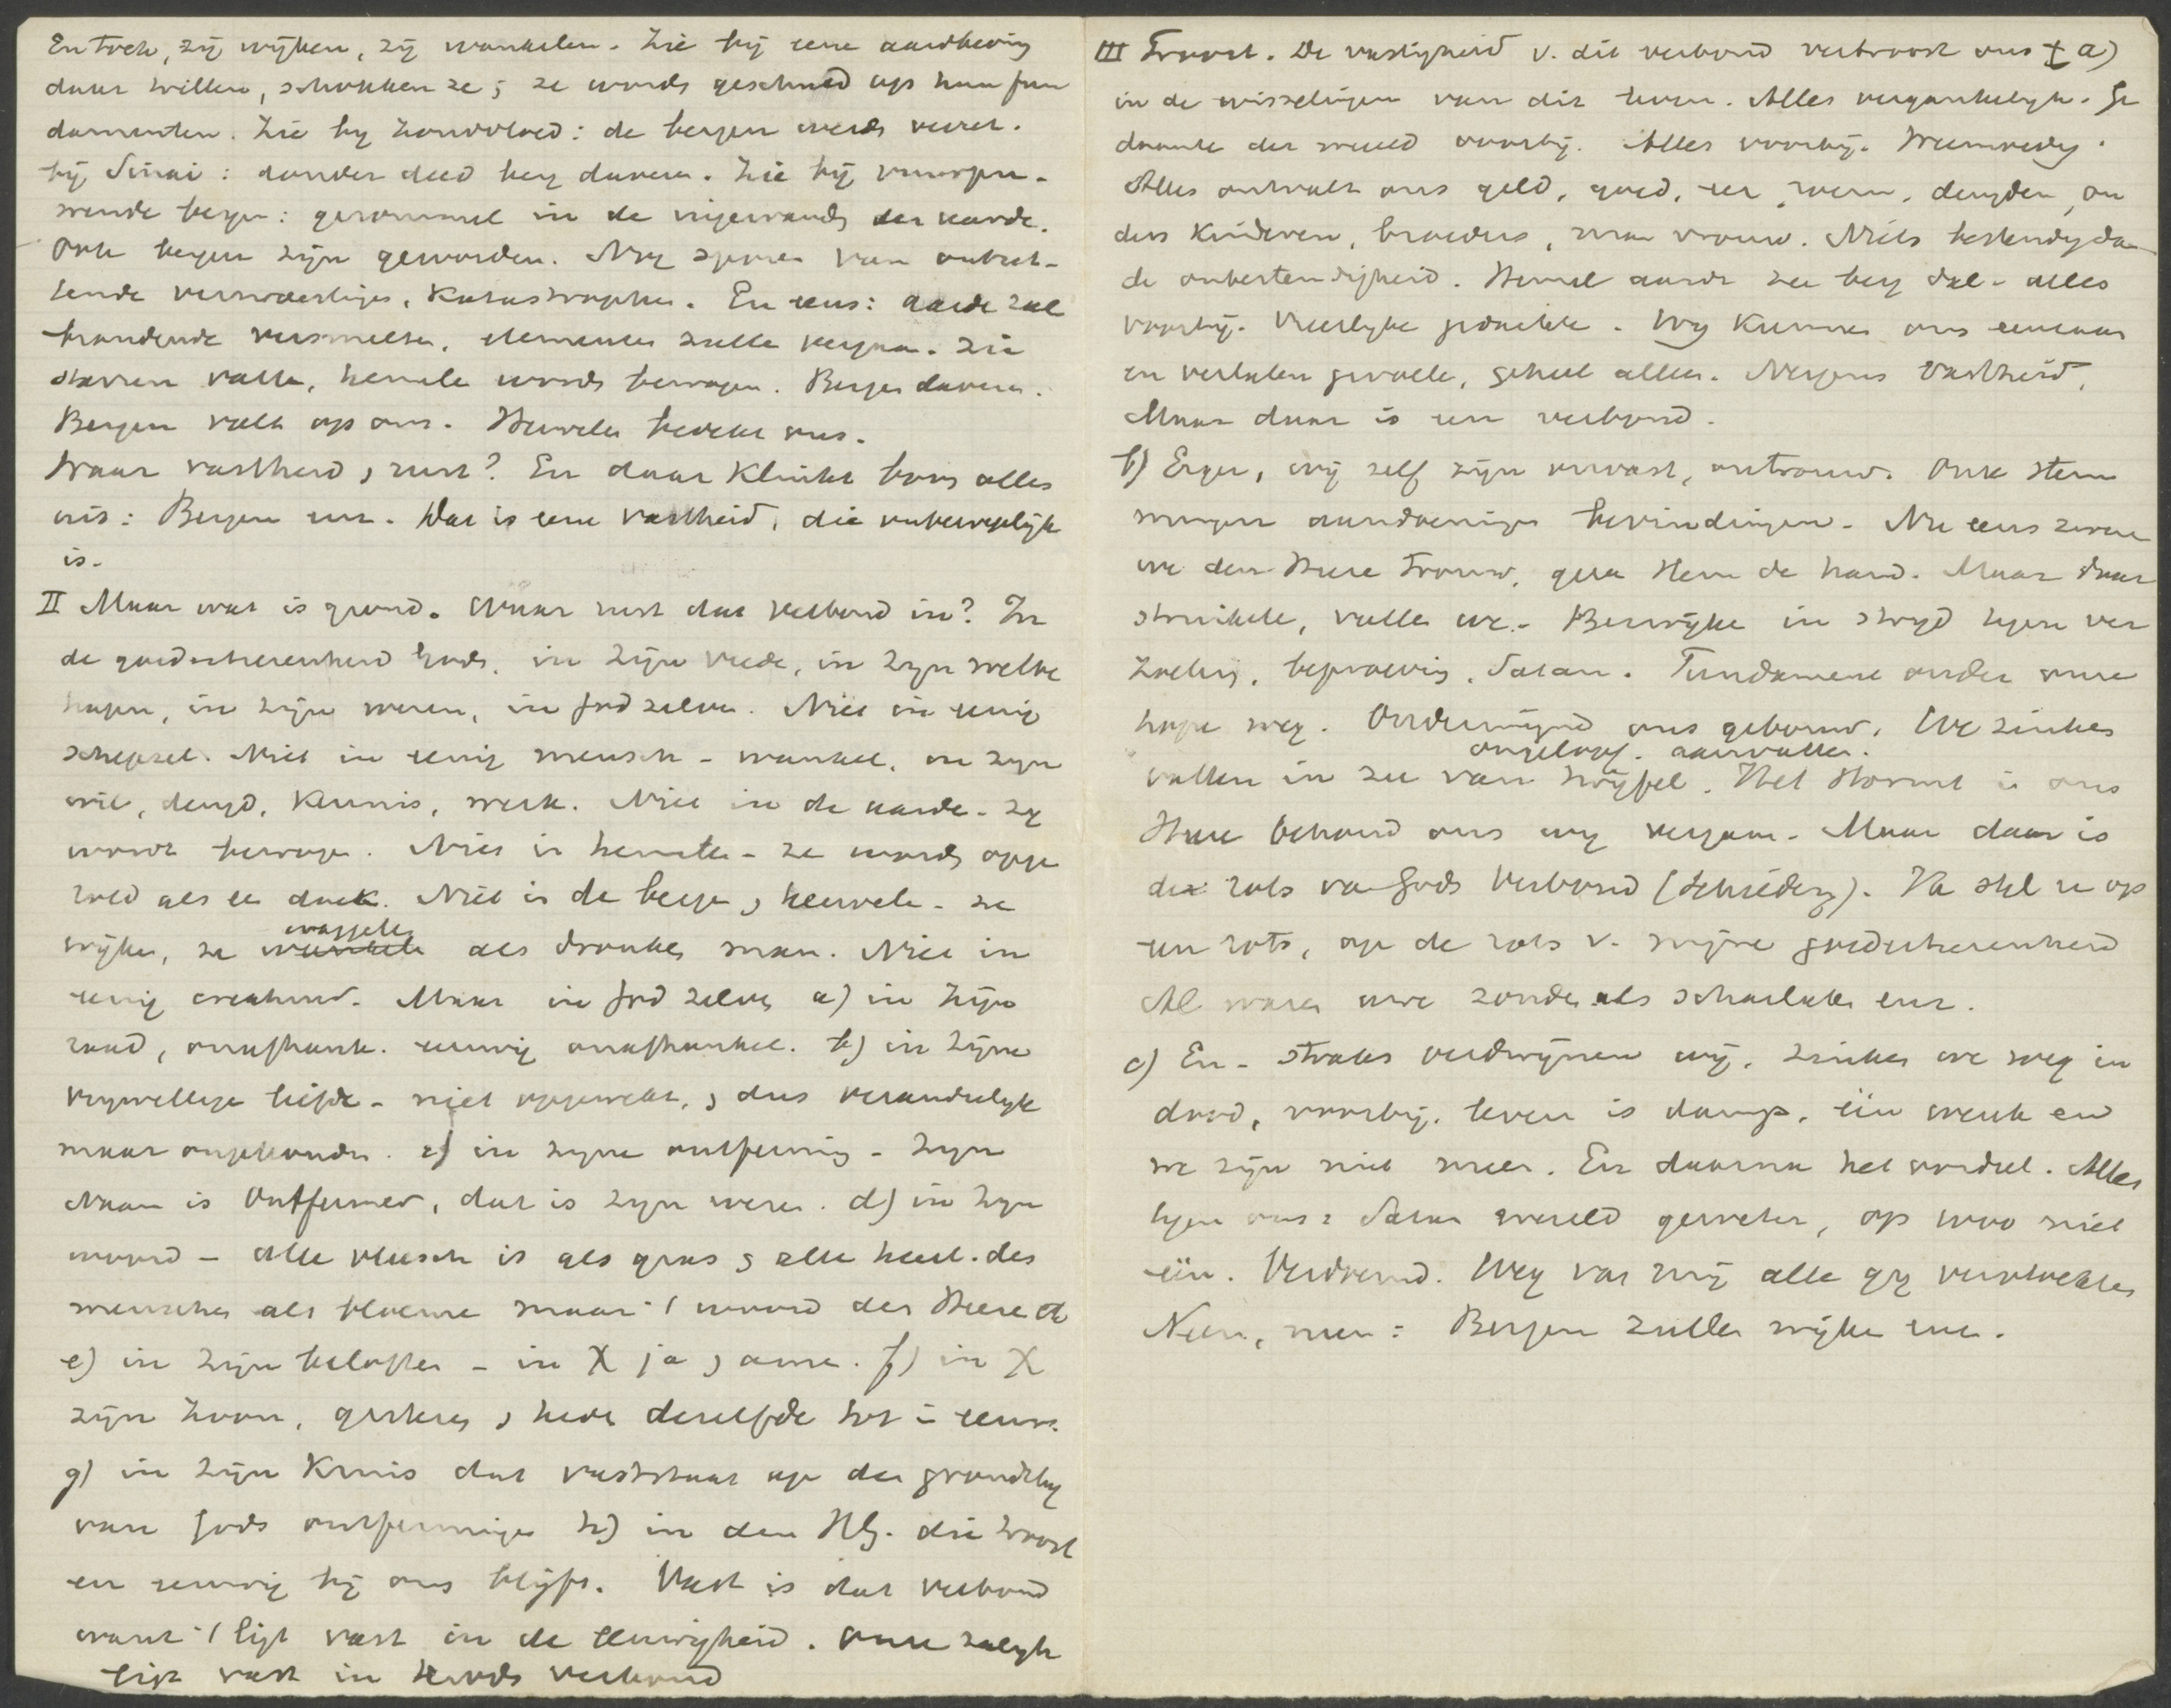 En toch, zij wijken, zij wankelen. Zie bij eene aardbeving
daar trillen, schokken ze; ze words geschud op hun fun
damenten. Zie by zondvloed: de bergen werds
bij Sinai: donder deed berg daveren. Zie bij vuurspu-
wende bergen: gerommel in de ingewands der aarde.
Ook bergen zijn geworden. Nog sporen van ontzet-
tende verwoestinge, Katastrophen. En eens: aarde zal
brandende versmelten, elementen zulle vergaan. Zie
sterren valle, hemele words bewogen. Bergen daveren.
Bergen valt op ons. Heuvelen bedekt ons.
Waar vastheid, rust? En daar klinkt boven alles
uit: Bergen enz. Dat is eene vastheid, die onbeweeglijk
is.
II Maar wat is grond. Waar rust dat verbond in? In
de goedertierenheid Gods, in zijn vrede, in zijn welbe
hagen, in zijn wezen, in God zelven. Niet in eenig
schepsel. Niet in eenig mensch - wankel, in zijn
wil, deugd, kennis, werk. Niet in de aarde - zij
wordt bewogen. Niet in hemelen - ze words opge
rold als een doek. Niet in de bergen, heuvele - ze
wijken, ze wankele waggelen als dronken man. Niet in
eenig creatuur. Maar in God zelven a) in zijn
raad, onafhank. eeuwig onafhankel. b) in zijne
vrijwillige liefde - niet opgewekt, dus veranderlijk
maar ongehouden. c) in zijne ontferming - zijn
Naam is Ontfermer, dat is zijn wezen. d) in zijn
woord - alle vleesch is als gras, alle heerl. des
menschen als bloeme maar 't woord des Heere
e) in zijn beloften - in X ja, amen. f) in X
zijn Zoon, gisteren, heden dezelfde tot in eeuw.
g) in zijn Kruis dat vaststaat op den grondslag
van Gods ontferminge h) in den Hlg. die troost
en eeuwig bij ons blijft. Vast is dat verbond
want 't ligt vast in de eeuwigheid. Onze zaligh
ligt vast in Gods verbond
III Troost. De vastigheid v. dit verbond vertroost ons a)
in de wisselingen van dit leven. Alles vergankelijk. Ge
daante der wereld voorbij. Alles voorbij.
Alles ontvalt ons geld, goed, eer, roem, deugden, ou
ders kinderen, broeders, man vrouw. Niets bestendig dan
de onbestendigheid. Hemel aarde zee berg dal - alles
voorbij. Vreeslijke gedachte. Wij kunnen ons eenzaam
en verlaten gevoele, geheel alleen. Nergens vastheid,
Maar daar is een verbond.
b) Erger, wij zelf zijn onvast, ontrouw. Onze stem
mingen aandoeninge bevindingen. Nu eens zweren
we den Heere trouw, geven Hem de hand. Maar daar
struikele, vallen we. Bezwijke in strijd tegen ver
zoeking, beproeving, Satan. Fundament onder onze
hope weg. Ondermijnd ons gebouw. We zinken
vallen in zee van twijfel. ongeloof. aanvallen. Het stormt in ons
Heere behoud ons wij vergaan. Maar daar is
de rots van Gods verbond (Schriederz). Ik stel u op
een rots, op de rots v. mijne goedertierenheid
Al waren uwe zonden als scharlaken enz.
c) En - straks verdwijnen wij, zinken we weg in
dood, voorbij. Leven is damp, één wenk en
we zijn niet meer. En daarna het oordeel. Alles
tegen ons: Satan wereld geweten, op 1000 niet
één. Verdoemd. Weg van mij alle gij vervloekten
Neen, neen: Bergen zullen wijken enz.